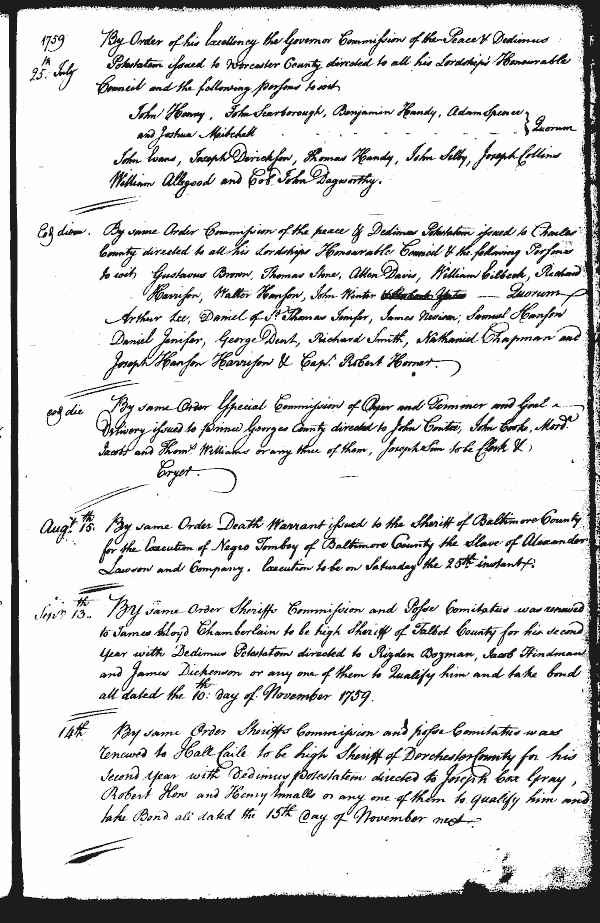 1759
25th July
By Order of his Excellency the Governor Commission of the Peace & Dedimus
Potestatem issued to Worcester County directed to all his Lordship's Honourable
Council and the following persons to wit
John Henry, John Scarborough, Benjamin Handy, Adam Spence
and Joshua Mitchell
Quorum
John Evans, Joseph Derickson, Thomas Handy, John Selby, Joseph Collins
William Allegood and Col. John Dagworthy.
Eod. diem. By same Order Commission of the peace & Dedimus Potestatem issued to Charles
County directed to all his Lordships Honourable Council & the following Persons
to wit Gustavus Brown, Thomas Stone, Allen Davis, William Eilbeck, Richard
Harrison, Walter Hanson, John Winter — Quorum
Arthur Lee, Daniel of St. Thomas Jenifer, James Nivison, Samuel Hanson
Daniel Jenifer, George Dent, Richard Smith, Nathaniel Chapman and
Joseph Hanson Harrison & Capt. Robert Horner.
eod die By same Order Especial Commission of Oyer and Terminer and Goal
Delivery issued to Prince Georges County directed to John Contee, John Cooke, Mord.
Jacob and Thoms. Williams or any three of them, Joseph Sim to be Clerk &
Cryer.
Augt. 15th. By same Order Death Warrant issued to the Sheriff of Baltimore County
for the Execution of Negro Tomboy of Baltimore County the Slave of Alexander
Lawson and Company. Execution to be on Saturday the 25th instant.
Sepr. 13th. By same Order Sheriffs Commission and Posse Comitatus was renewed
to James Lloyd Chamberlain to be high Sheriff of Talbot County for his second
year with Dedimus Potestatem directed to Rizden Bozman, Jacob Hindman
and James Dickenson or any one of them to Qualify him and take bond
all dated the 10th: day of November 1759.
14th By same Order Sheriffs Commission and posse Comitatus was
renewed to Hall Caile to be high Sheriff of Dorchester County for his
second year with Dedimus Potestatem directed to Joseph Cox Gray,
Robert How and Henry Ennalls or any one of them to qualify him and
take Bond all dated the 15th day of November next.